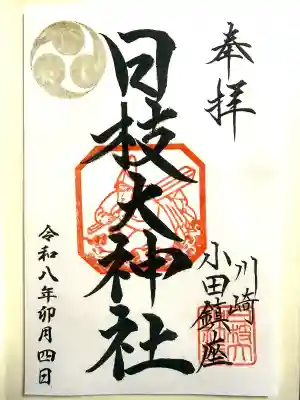 奉拝
川崎
小田鎮座
日枝大神社
令和八年卯月四日